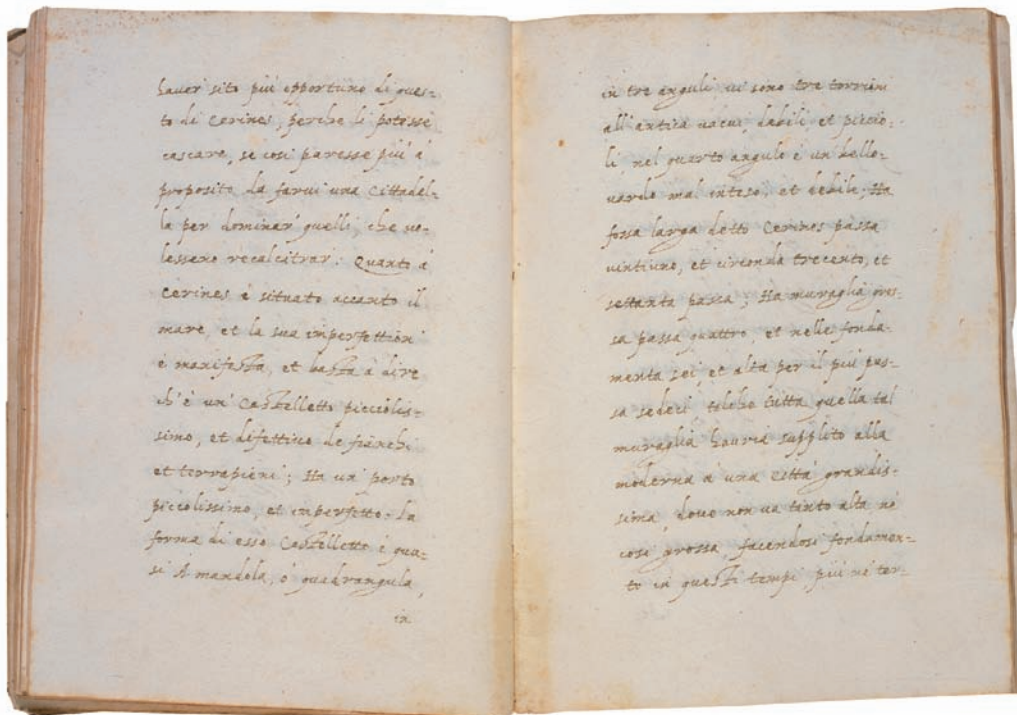 haver sito più opportuno di ques=
to di Cerines, perche li potesse
cascare, se così paresse più à
proposito da farvi una Cittadel=
la per dominar quelli, che vo=
lessero recalcitrar. Quanto à
Cerines è situato accanto il
mare, et la sua imperfettion
è manifesta, et basta à dire
ch'è un Castelletto piccolis=
simo, et difettivo de fianchi
et terrapieni; Ha un porto
piccolissimo, et imperfetto. La
forma di esso Castelletto è qua=
si A mandola, ò quadrangula,
in
in tre anguli vi sono tre torrioni
all'antica vacui, debili, et piccio=
li, nel quarto angulo è un bello=
vardo mal inteso, et debile. Ha
fossa larga detto Cerines passa
vintiuno, et circonda trecento, et
settanta passa; Ha muraglia gros=
sa passa quattro, et nelle fonda=
menta sei, et alta per il più pas=
sa sedeci, talche tutta quella tal
muraglia hauria supplito alla
moderna a una città grandis=
sima, dove non va tanto alta, nè
così grossa, facendosi fondamen=
to in questi tempi più nè ter=